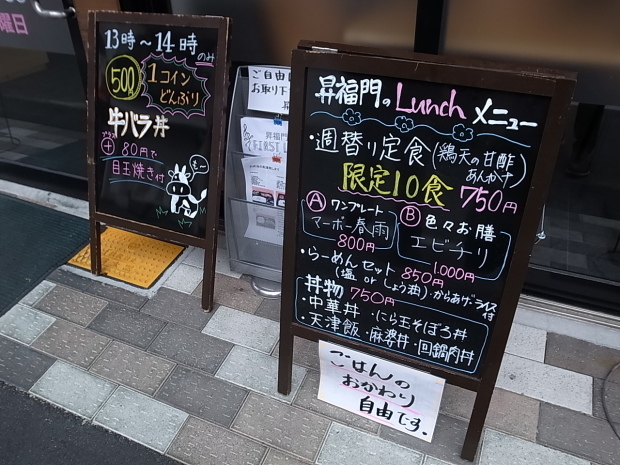 曜日
13時～14時のみ
500
1コイン
どんぶり
牛バラ丼
プラス
+ 80円で
目玉焼き付
ご自由に
お取り下
昇福門
昇福門のLunchメニュー
・週替り定食(鶏天の甘酢
あんかけ)
限定10食 750円
A ワンプレート
マーボー春雨
800円
B 色々お膳
エビチリ
1,000円
・らーめんセット 850円
(塩 or しょう油)・からあげ・ライス付
丼物 750円
・中華丼 ・にら玉そぼろ丼
・天津飯 ・麻婆丼 ・回鍋肉丼
ごはんの
おかわり
自由です。